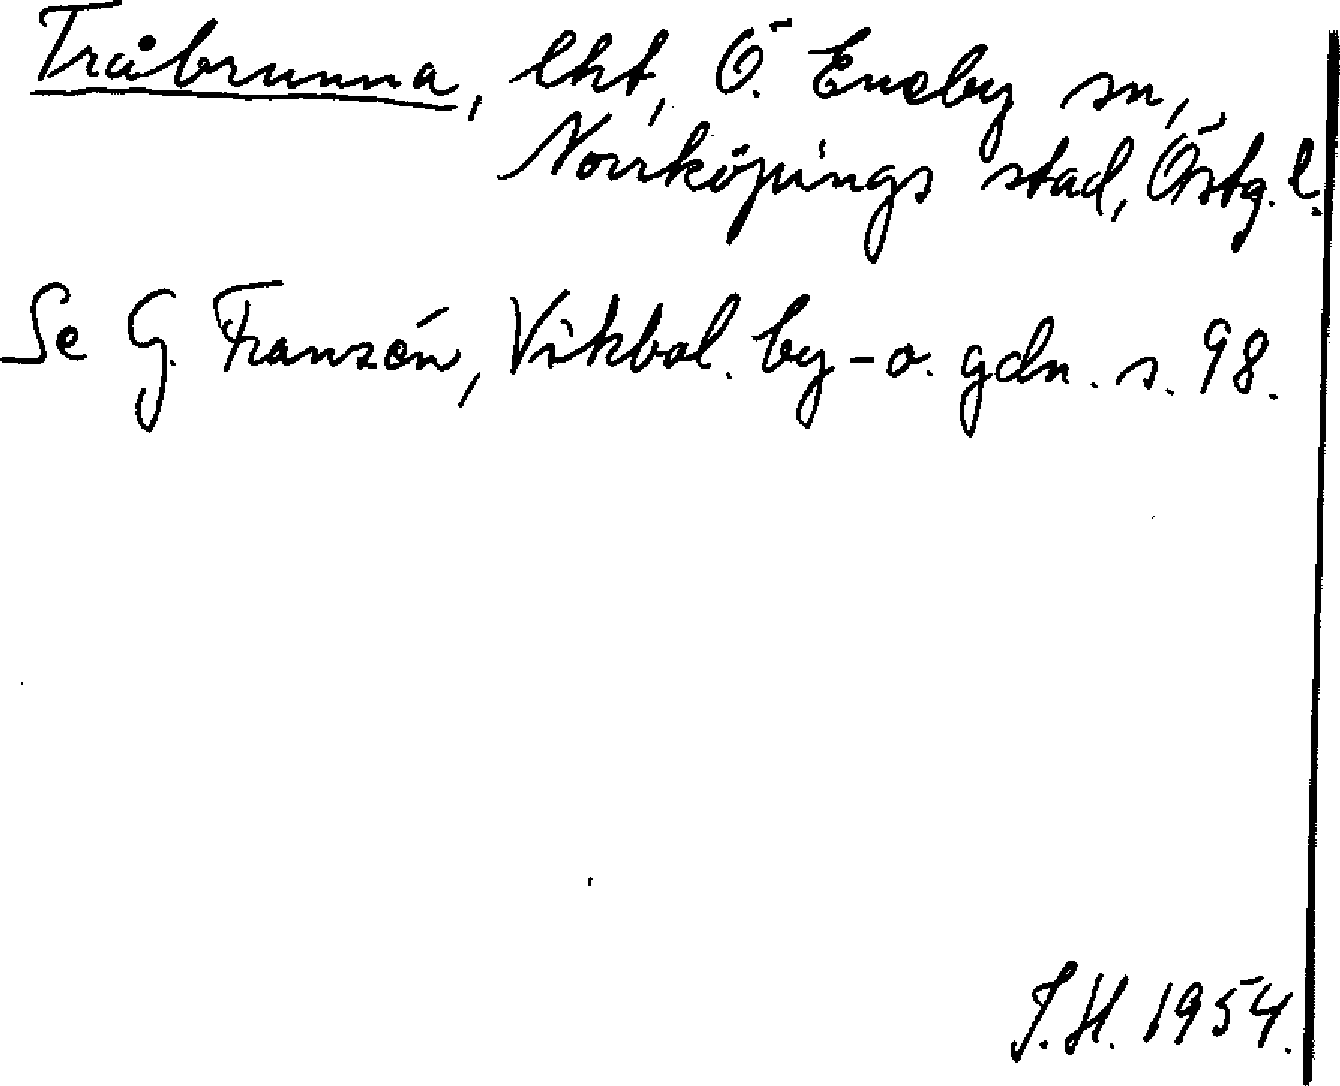 Tråbrunna, lht, Ö. Eneby sn,
Norrköpings stad, Östg. l.
Se G. Franzén, Vikbol. by- o. gdn. s. 98.
J.H. 1954.